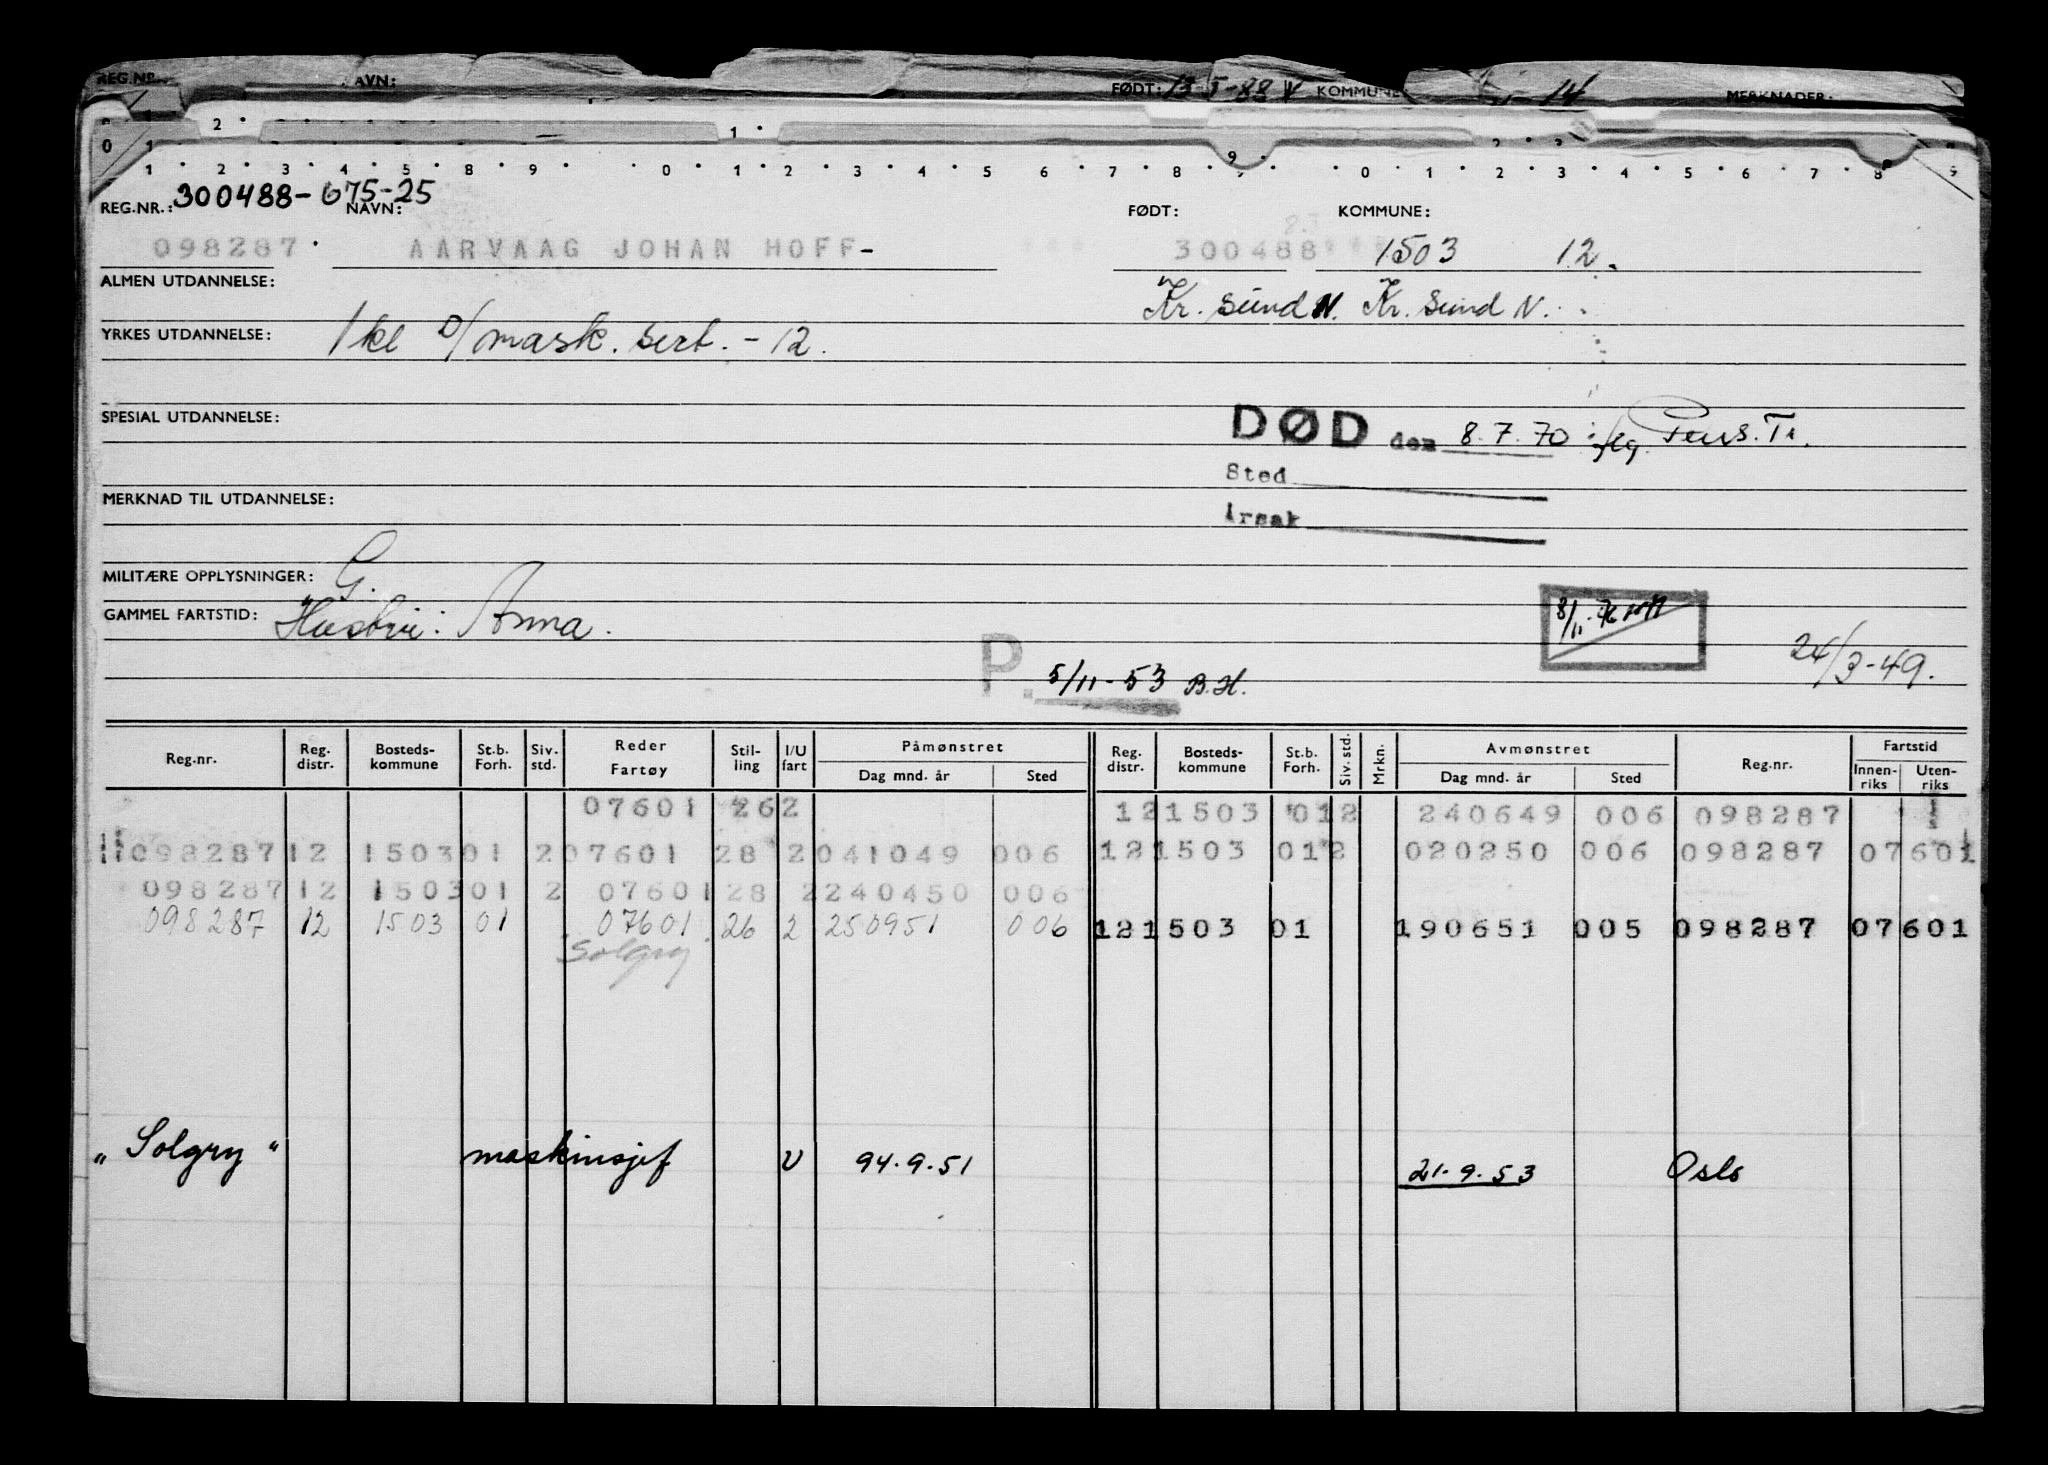 REG.NR. AVN: FØDT: 13-5-88 V KOMMUNE 14 MERKNADER:
0 1 2 1 2 3
1 2 3 4 5 8 9 0 1 2 3 4 5 6 7 8 9 0 1 2 3 4 5 6 7 8 9
300488-675-25
REG.NR.: NAVN: FØDT: KOMMUNE:
098287 AARVAAG JOHAN HOFF- 300488 1503 12.
ALMEN UTDANNELSE: Kr. sund N. Kr. sund N.
YRKES UTDANNELSE: 1 kl D/mask. sert. - 12.
SPESIAL UTDANNELSE: DØD den 8.7.70 iflg. Pens. Tr.
Sted
MERKNAD TIL UTDANNELSE:
Årsak
MILITÆRE OPPLYSNINGER: G.
GAMMEL FARTSTID: Hustru: Anna.
P. 5/11-53 B.H. 24/3-49.
Reg.nr. Reg. distr. Bosteds- kommune St.b. Forh. Siv. std. Reder Fartøy Stil- ling I/U fart Påmønstret Dag mnd. år Sted Reg. distr. Bosteds- kommune St.b. Forh. Siv. std. Mrkn. Avmønstret Dag mnd. år Sted Reg.nr. Fartstid Innen- riks Uten- riks
07601 262 121503 012 240649 006 098287
098287 12 150301 207601 28 2041049 006 121503 012 020250 006 098287 07601
098287 12 150301 2 07601 28 2240450 006
098287 12 1503 01 07601 26 2 250951 006 121503 01 190651 005 098287 07601
Solgry
"Solgry" maskinsjef U 94.9.51 21.9.53 Oslo